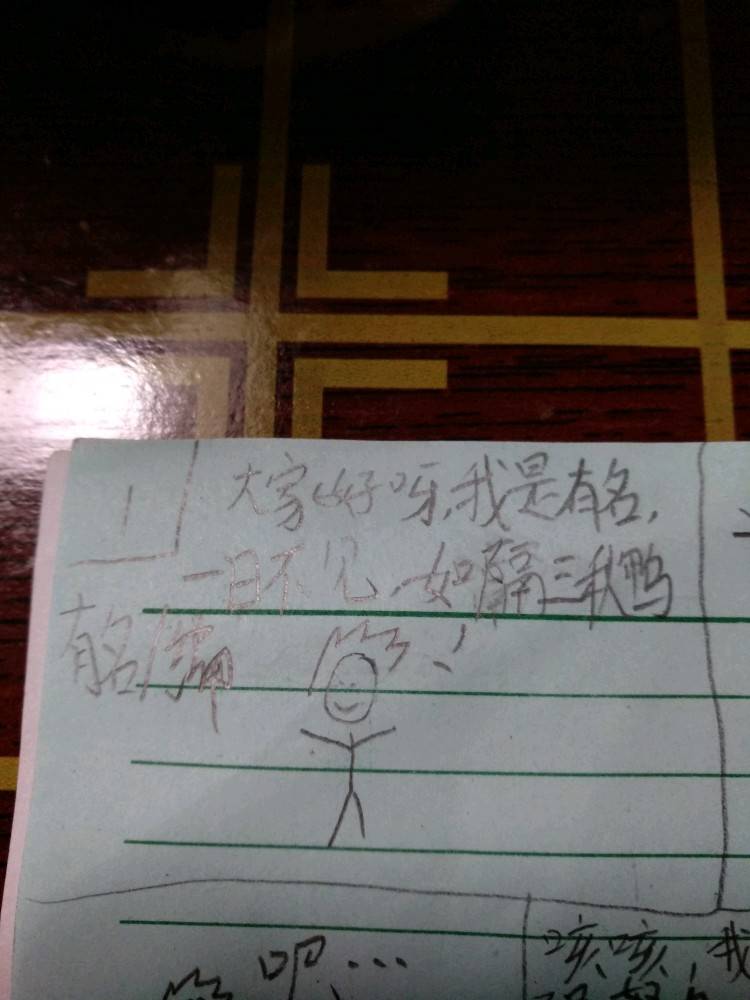 1
大家好呀,我是有名,
一日不见,如隔三秋鸭
有名
!
吧…
咳咳,我